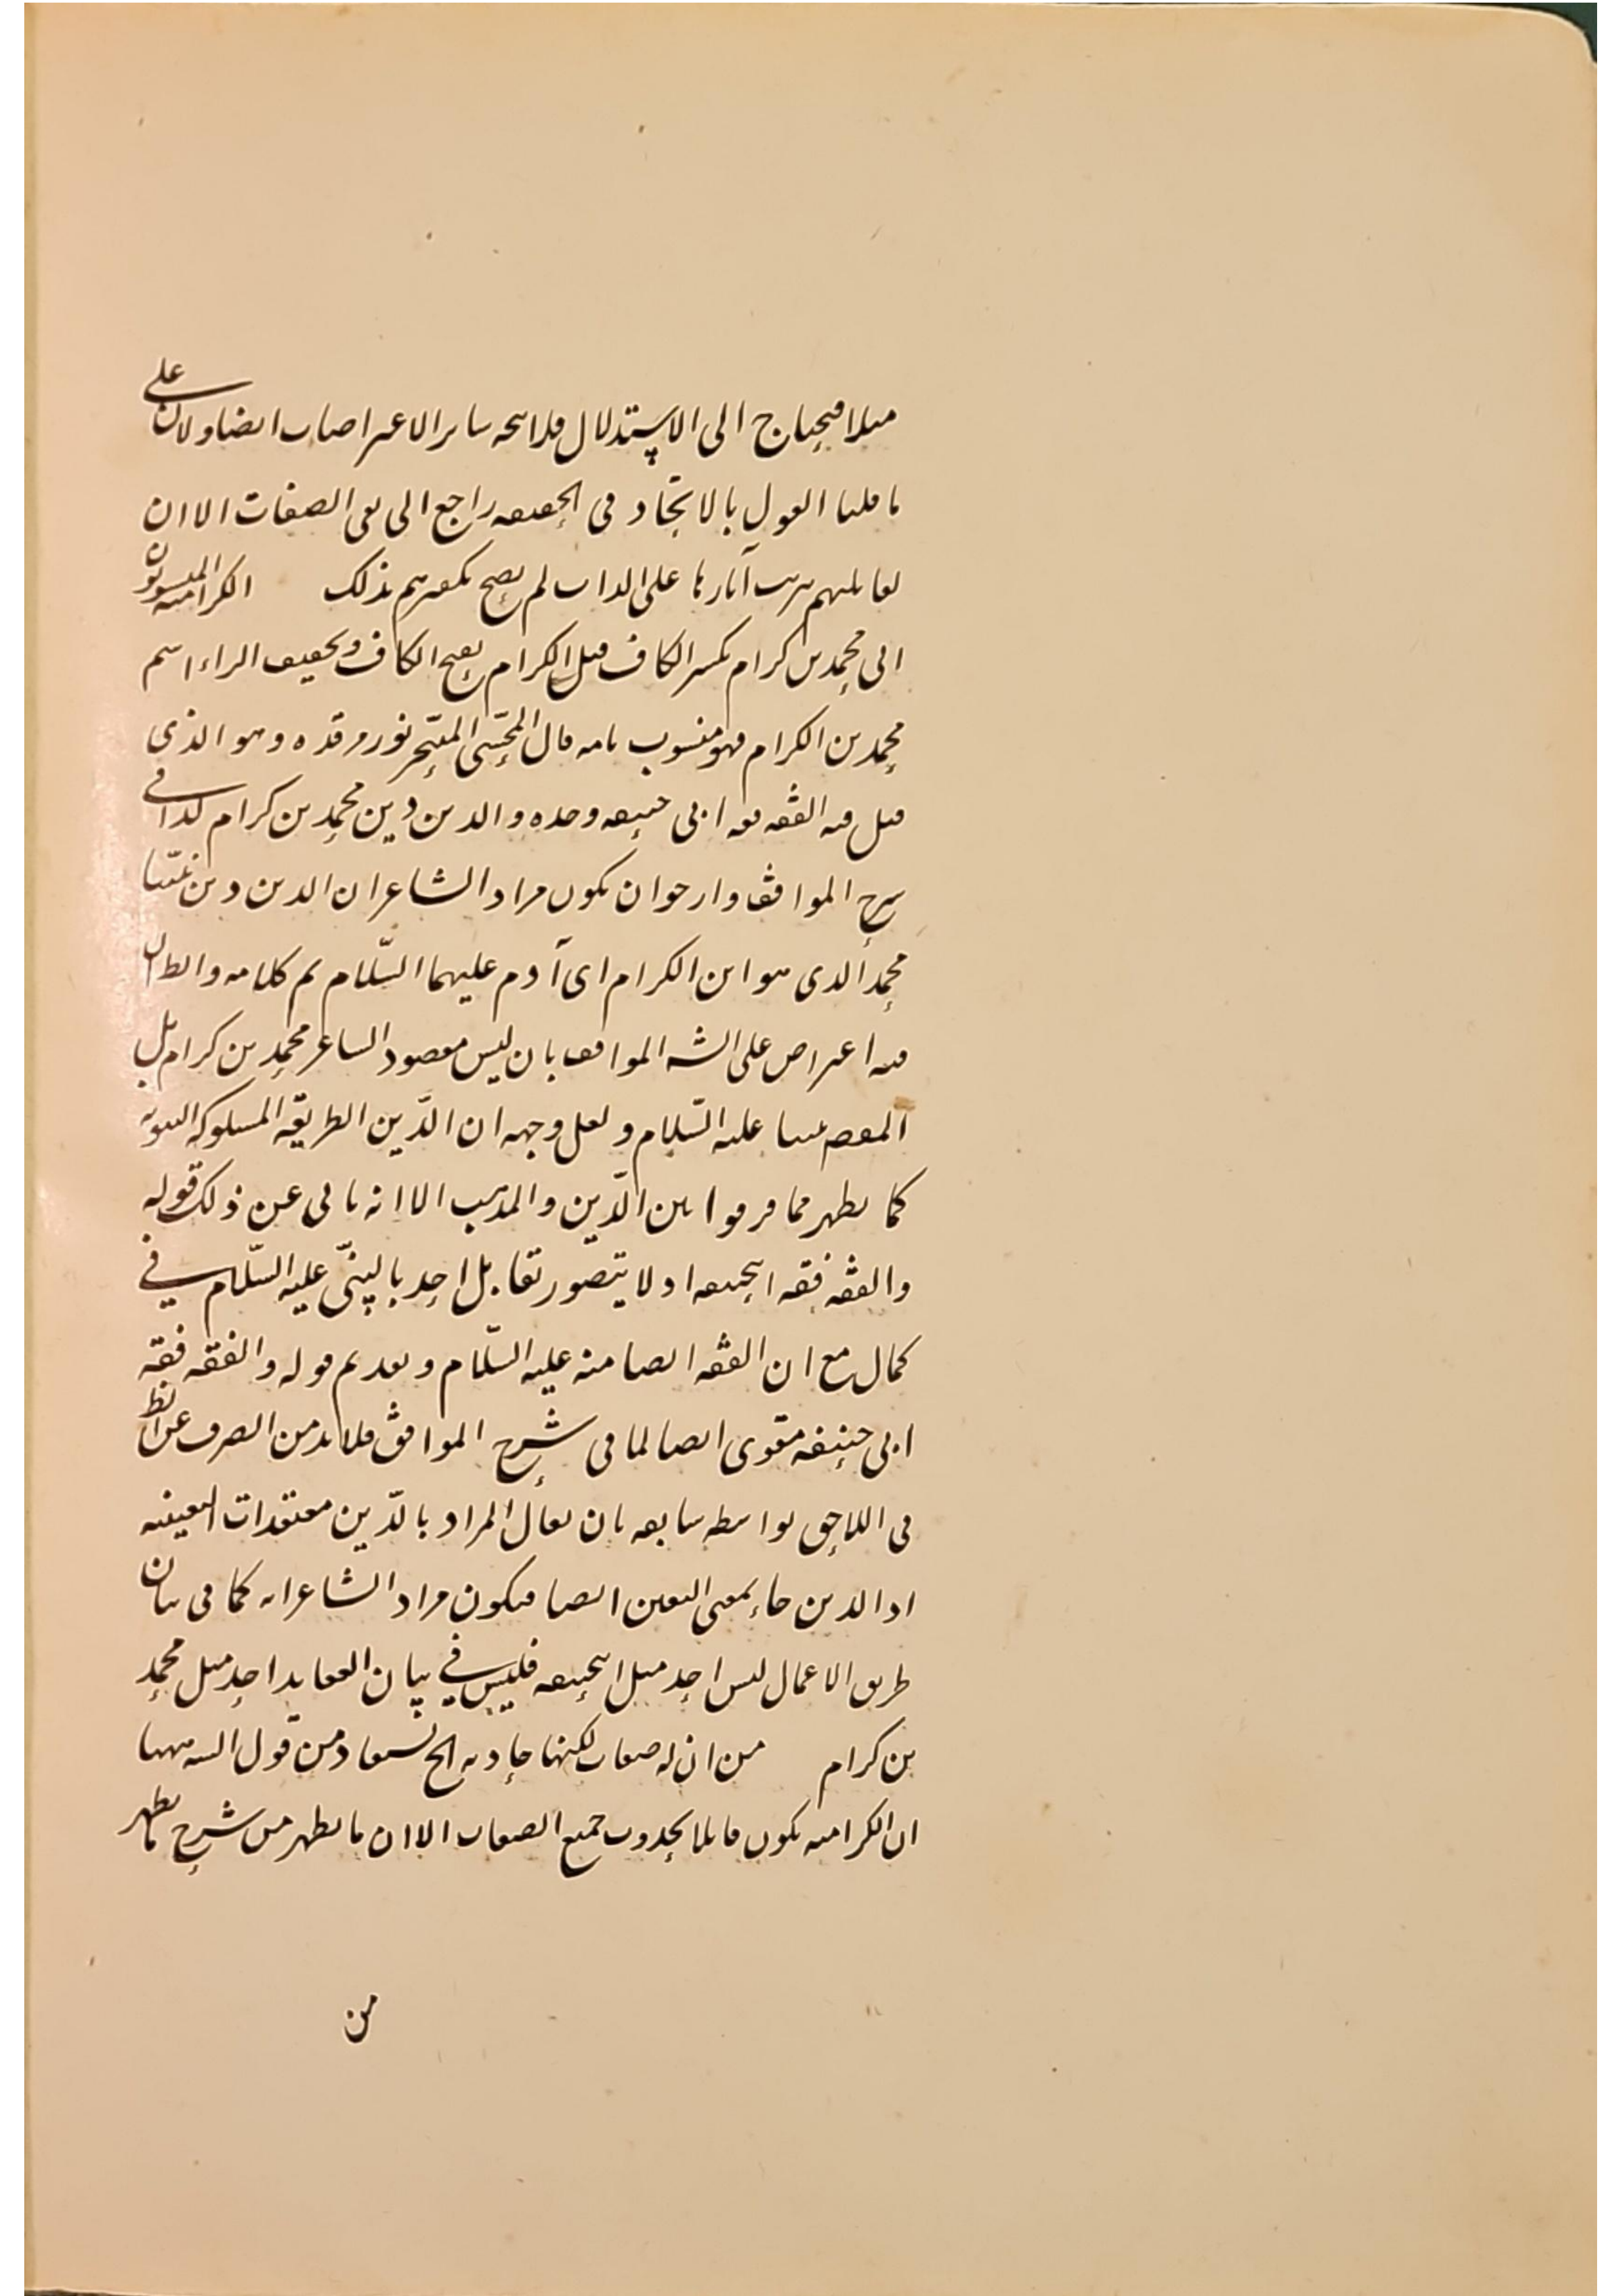 مثلا فيحتاج الى الاستدلال فلا يتجه سائر الاعتراضات ايضا ولان على
ما قلنا القول بالاتحاد في الحقيقة راجع الى نفي الصفات الا ان
لقائليهم ترتب آثارها على الذات لم يصح تكفيرهم بذلك الكرامية المنسوبون
الى محمد بن كرام بكسر الكاف قيل الكرام بفتح الكاف وتخفيف الراء اسم
محمد بن الكرام فهو منسوب بامه قال المحشي المتبحر نور مرقده وهو الذي
قيل فيه الفقه فقه ابي حنيفة وحده والدين دين محمد بن كرام كذا في
شرح المواقف وارجو ان يكون مراد الشاعر ان الدين دين نبينا
محمد الذي هو ابن الكرام اى آدم عليهما السّلام تم كلامه والظ ان
فيه اعتراض على الشه المواقف بان ليس مقصود الشاعر محمد بن كرام بل
المقصم نبينا عليه السّلام ولعل وجهه ان الدّين الطريقة المسلوكة النبوية
كما يظهر مما فرقوا بين الدّين والمذهب الا انه يابى عن ذلك قوله
والفقه فقه ابيحنيفة اذ لا يتصور تقابل احد بالنبيّ عليه السّلام في
كمال مع ان الفقه ايضا منه عليه السّلام وتقديم قوله والفقه فقه
ابي حنيفة مقوى ايضا لما في شرح المواقف فلا بد من الصرف عن الظ
في اللاحق بواسطة سابقه بان يقال المراد بالدّين معتقدات اليقينية
اذ الدين جاء بمعنى اليقين ايضا فيكون مراد الشاعر انه كما في بيان
طريق الاعمال ليس احد مثل ابيحنيفة فليس في بيان العقايد احد مثل محمد
بن كرام من ان له صفات لكنها حادثة الخ يستفاد من قول الشه ههنا
ان الكرامية يكون قائلا بحدوث جميع الصفات الا ان ما يظهر من شرح ما يظهر
من